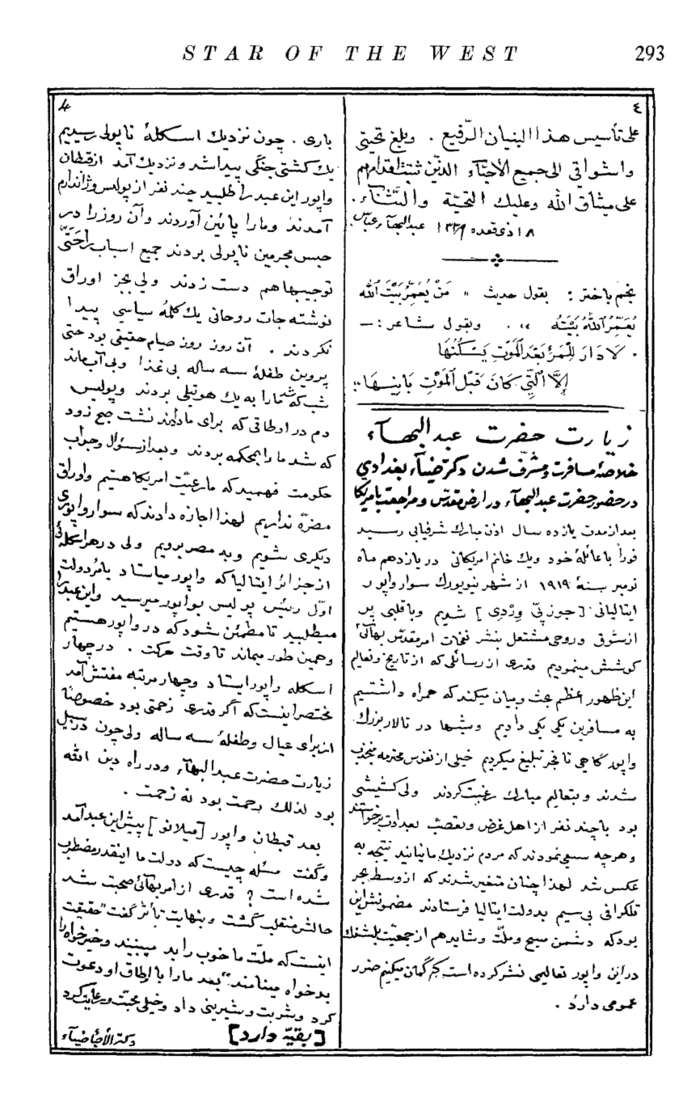 STAR OF THE WEST 293
٤
على تأسيس هذا البنيان الرّفيع . وبلّغ تحيّتي
واشواقي الى جميع الأحبّآء الذين ثبتت اقدامهم
على ميثاق الله وعليك التحيّة والثّنآء .
١٨ ذي قعده ١٣٣٩ عبدالبهآء عبّاس
نجم باختر : بقول حديث « مَنْ يُعَمِّرْ بَيْتَ اللهِ
يُعَمِّرِ اللهُ بَيْتَهُ » . وبقول شاعر :—
لَا دَارَ لِلْمَرْءِ بَعْدَ الْمَوْتِ يَسْكُنُهَا
إِلَّا الَّتِي كَانَ قَبْلَ الْمَوْتِ بَانِيهَا
زیارت حضرت عبدالبهآء
خلاصهٔ مسافرت و مشرّف شدن دکتر ضیآء بغدادی
در حضور حضرت عبدالبهآء در ارض مقدّس و مراجعت بامریکا
بعد از مدت یازده سال اذن مبارک شرفیابی رسید
فوراً با عائلهٔ خود ویک خانم امریکانی در یازدهم ماه
نومبر سنهٔ ١٩١٩ از شهر نیویورک سوار واپور
ایتالیانی [جوزپی وردی] شدیم وبا قلبی پر
از شوق وروحی مشتعل بنشر نفحات امر مقدّس بهائی
کوشش مینمودیم قدری از رسائلی که از تاریخ وتعالیم
این ظهور اعظم بحث وبیان میکند که همراه داشتیم
به مسافرین یکی یکی دادیم وشبها در تالار بزرگ
واپور گاهی تا فجر تبلیغ میکردیم خیلی از نفوس محترمه منجذب
شدند وبتعالیم مبارک رغبت کردند ولی کشیشی
بود با چند نفر از اهل غرض وتعصّب بعداوت برخواستند
وهرچه سعی نمودند که مردم نزدیک ما نیایند نتیجه به
عکس شد لهذا چنان متغیر شدند که از وسط بحر
تلگرافی بی سیم بدولت ایتالیا فرستادند مضمونش این
بود که دشمن مسیح وملّت وشاید هم از جمعیّت بلشفک
در این واپور تعالیمی نشر کرده است که گمان میکنیم ضرر
عمومی دارد .
٤
باری . چون نزدیک اسکلهٔ ناپولی رسیدیم
یک کشتی جنگی پیدا شد ونزدیک آمد از قبطان
واپور این عبد را طلبید چند نفر از پولیس وژاندارم
آمدند ومارا پائین آوردند وآن روز را در
حبس مجرمین ناپولی بردند جمیع اسباب را حتّی
توجیبها هم دست زدند ولی بجز اوراق
نوشته جات روحانی یک کلمهٔ سیاسی پیدا
نکردند . آن روز روز صیام حقیقی بود حتی
پروین طفلهٔ سه ساله بی غذا ولی آب ماند
شب که شد مارا به یک هوتلی بردند وپولیس
دم در اوطاقی که برای ما دادند نشست صبح زود
که شد مارا بمحکمه بردند وبعد از سؤال وجواب
حکومت فهمید که ما رعیّت امریکا هستیم واوراق
مضرّه نداریم لهذا اجازه دادند که سوار واپوری
دیگری شویم وبه مصر برویم ولی در هر اسکله‌ئی
از جزائر ایتالیا که واپور میاستاد بامر دولت
اوّل رئیس پولیس بواپور میرسید واین عبد را
میطلبید تا مطمئن شود که در واپور هستیم
وهمین طور میماند تا وقت حرکت . در چهار
اسکله واپور ایستاد وچهار مرتبه مفتش آمد
مختصر اینست که اگر قدری زحمتی بود خصوصاً
از برای عیال وطفلهٔ سه ساله ولی چون در سبیل
زیارت حضرت عبدالبهآء ودر راه دین الله
بود لذلک رحمت بود نه زحمت .
بعد قبطان واپور [میلانو] پیش این عبد آمد
وگفت مسئله چیست که دولت ما اینقدر مضطرب
شده است ؟ قدری از امر بهائی صحبت شد
حالش منقلب گشت وبنهایت تأثّر گفت «حقیقت
اینست که ملّت ما خوب را بد میبیند وخیرخواه را
بدخواه مینامند» بعد مارا با اطاق او دعوت
کرد وشربت وشیرینی داد وخیلی محبّت ورعایت کرد
[بقیّه دارد]
دکتر ضیآء